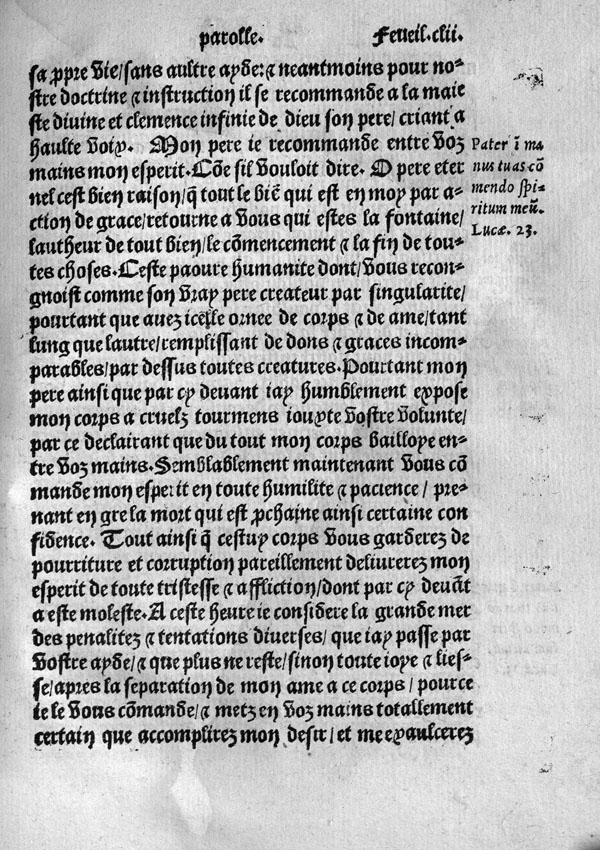 parolle. Feueil.clii.
sa ꝓpre vie/sans aultre ayde: ⁊ neantmoins pour no-
stre doctrine ⁊ instruction il se recommande a la maie
ste divine et clemence infinie de dieu son pere/criant a
haulte voix. Mon pere ie recommande entre voz
mains mon esperit. Cõe sil vouloit dire. O pere eter
nel cest bien raison/q̃ tout le biẽ qui est en moy par a-
ction de grace/retourne a vous qui estes la fontaine/
lautheur de tout bien/le cõmencement ⁊ la fin de tou-
tes choses. Ceste paoure humanite dont/vous recon-
gnoist comme son vray pere createur par singularite/
pourtant que avez icelle ornee de corps ⁊ de ame/tant
lung que lautre/remplissant de dons ⁊ graces incom-
parables/par dessus toutes creatures. Pourtant mon
pere ainsi que par cy devant iay humblement expose
mon corps a cruelz tourmens iouxte vostre volunte/
par ce declairant que du tout mon corps bailloye en-
tre voz mains. Semblablement maintenant vous cõ
mande mon esperit en toute humilite ⁊ pacience/ pre-
nant en gre la mort qui est ꝓchaine ainsi certaine con
fidence. Tout ainsi q̃ cestuy corps vous garderez de
pourriture et corruption pareillement delivrerez mon
esperit de toute tristesse ⁊ affliction/dont par cy devãt
a este moleste. A ceste heure ie considere la grande mer
des penalitez ⁊ tentations diverses/ que iay passe par
vostre ayde/⁊ que plus ne reste/sinon toute ioye ⁊ lies-
se/apres la separation de mon ame a ce corps/ pource
ie le vous cõmande/⁊ metz en voz mains totallement
certain que accomplirez mon desir/ et me exaulcerez
Pater ĩ ma
nus tuas cõ
mendo spi-
ritum meũ.
Lucæ. 23.